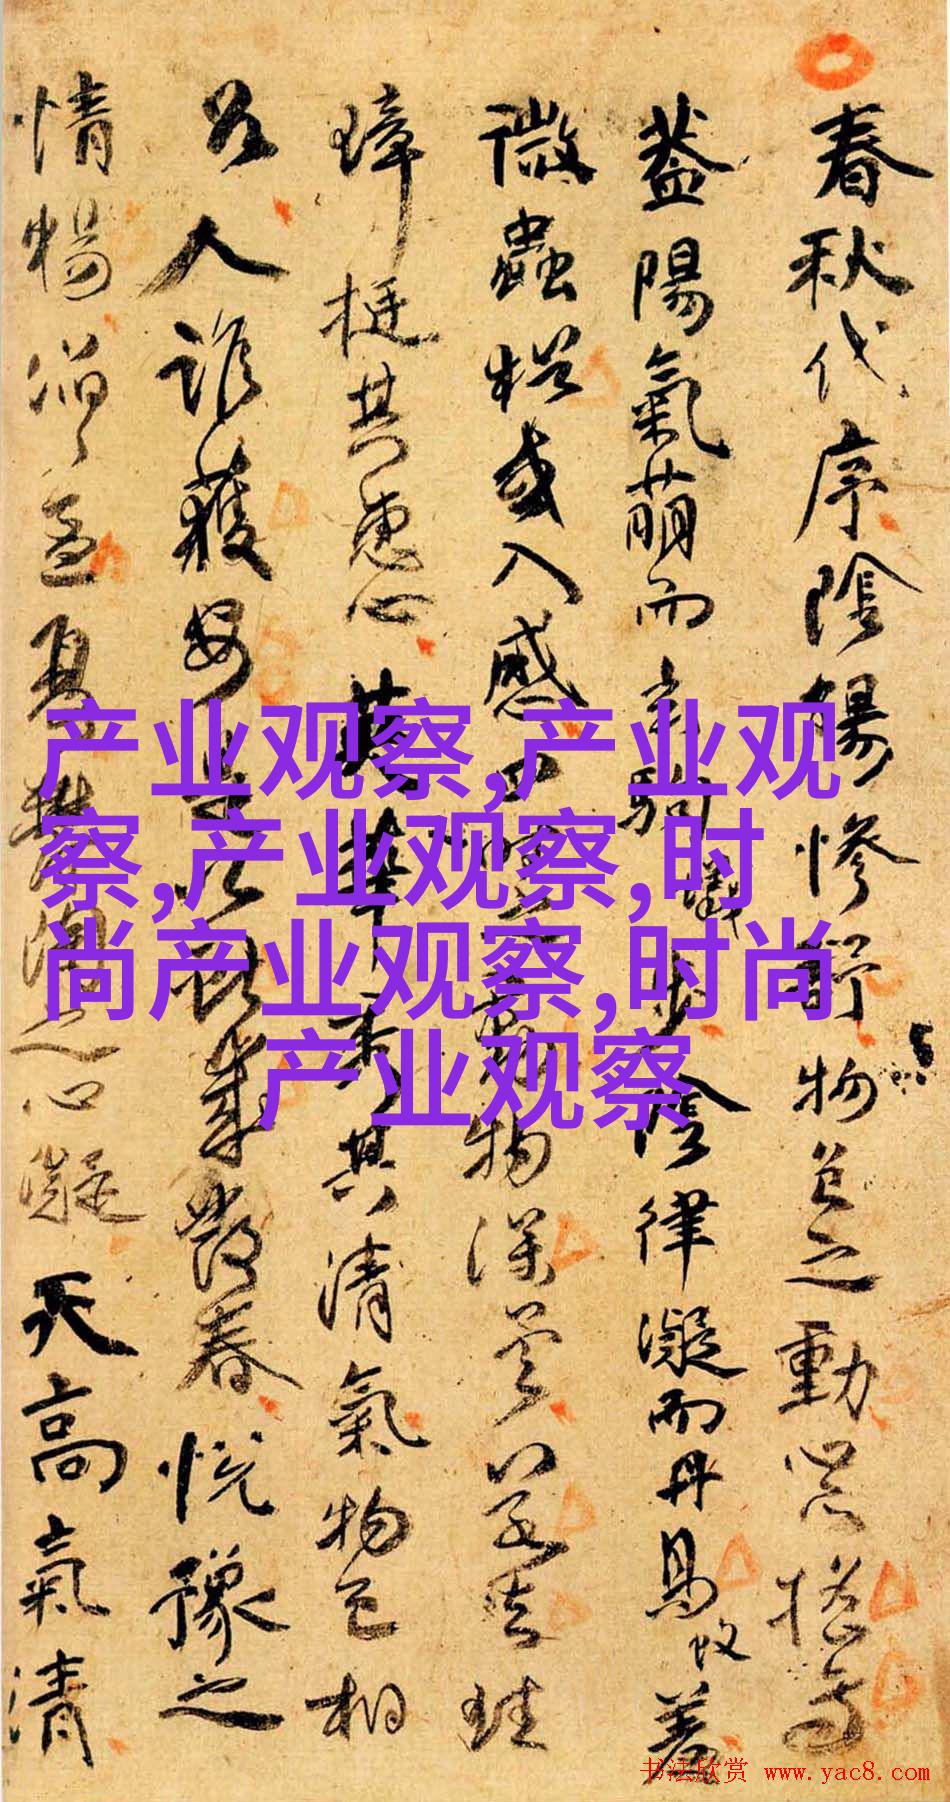 春秋代序陰陽慘舒物色之動心搖焉
蓋陽氣萌而玄駒步陰律凝而丹鳥羞
微蟲猶或入感四時之動物深矣若夫珪
璋挺其惠心英華秀其清氣物色相
召人誰獲安是以獻歲發春悅豫之
情暢滔滔孟夏鬱陶之心凝天高氣清
产业观察,产业观
察,产业观察,时
尚产业观察,时尚
产业观察
书法欣赏 www.yac8.com